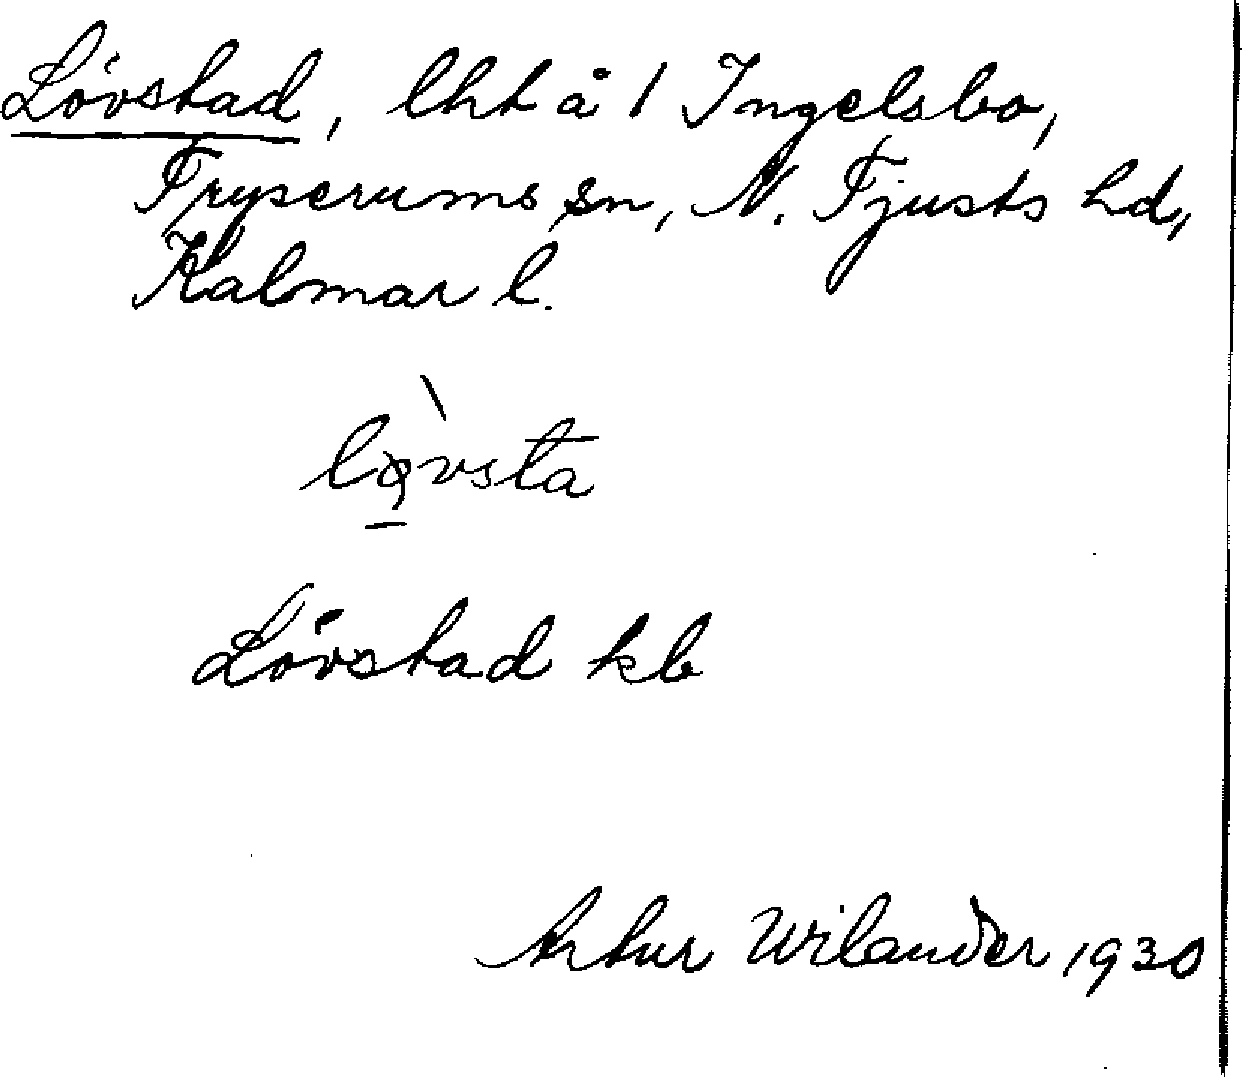 Lövstad, lht å 1 Ingelsbo,
Tryserums sn, N. Tjusts hd,
Kalmar l.
lǫ̀vsta
Lövstad kb
Artur Wilander 1930